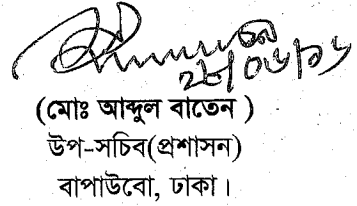 ২৮/০৬/১৬
(মোঃ আব্দুল বাতেন )
উপ-সচিব(প্রশাসন)
বাপাউবো, ঢাকা।